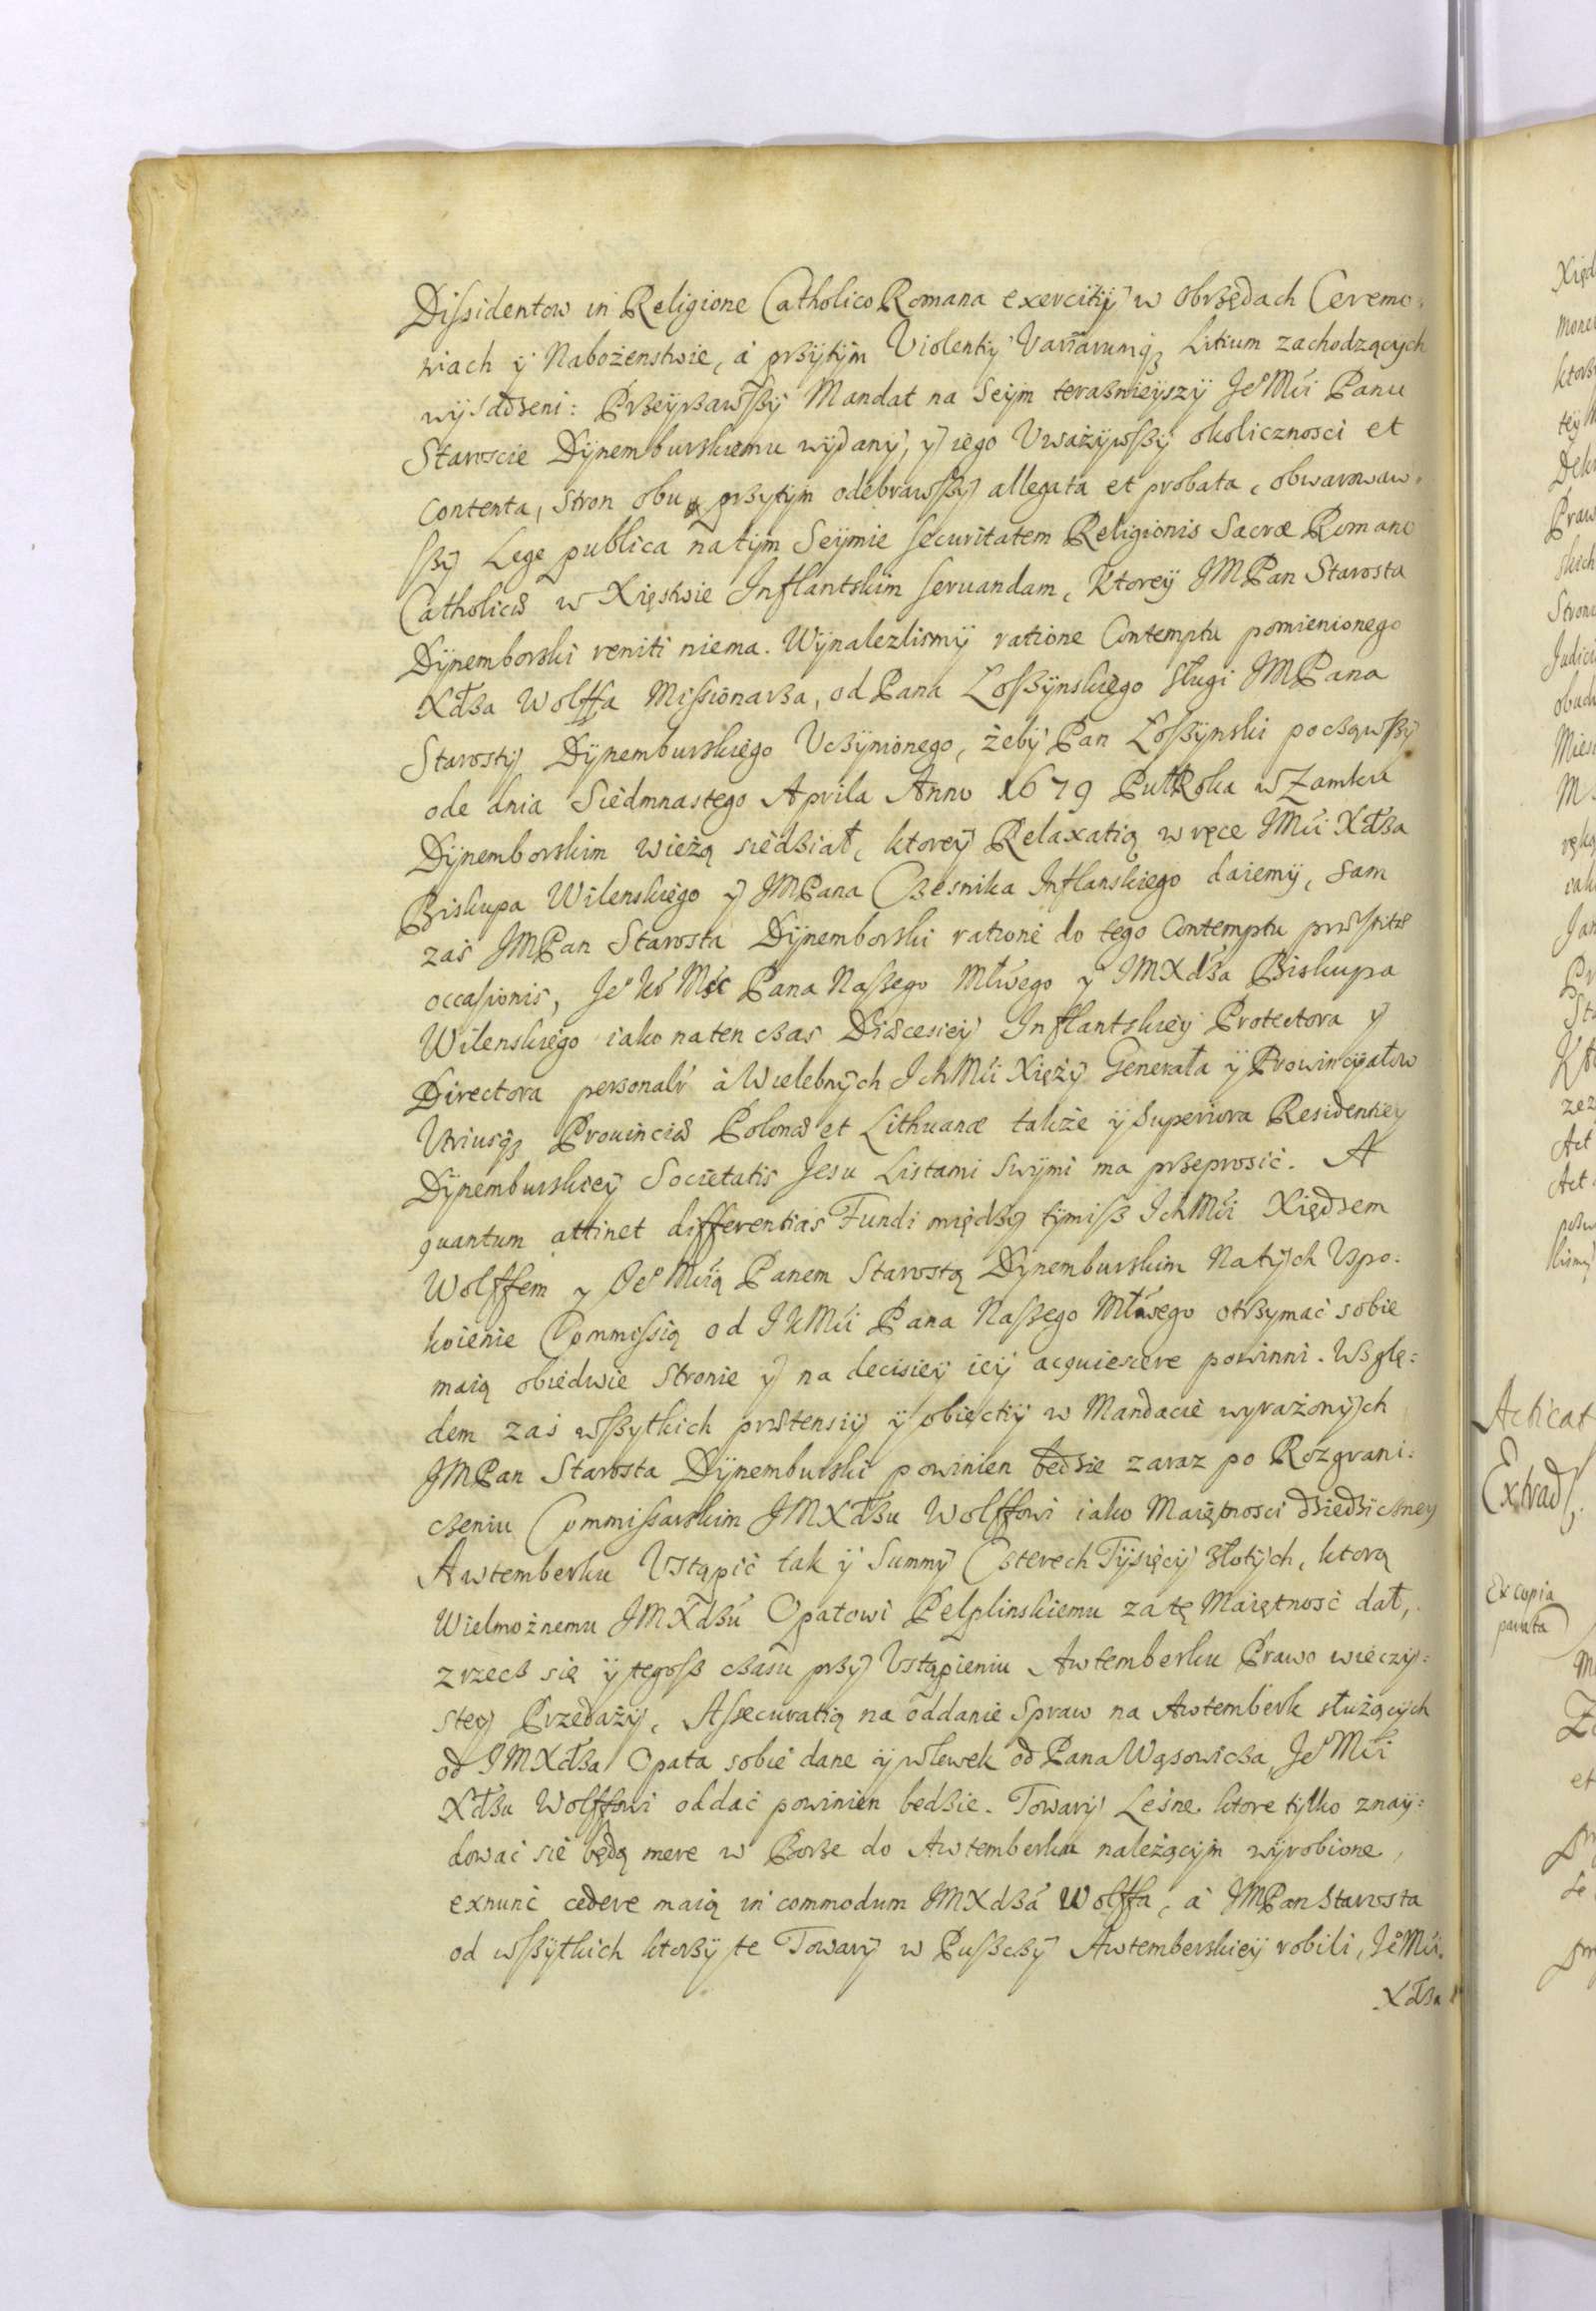 Dissidentow in Religione Catholico Romana exercitÿ w Obrzędach Ceremo-
niach ÿ Nabożenstwie, à przÿtÿm Violentiÿ Variarumq₃ Litium zachodzącÿch
wÿsadzeni: Przeÿrzawszÿ Mandat na Seÿm teraznieÿszÿ Je° Mći Panu
Staroscie Dÿnemburskiemu wÿdanÿ, ÿ iego Uważÿwszÿ okolicznosci et
contenta, stron obu przytÿm odebrawszÿ allegata et probata, obwarowaw-
szÿ Lege publica natÿm Seÿmie securitatem Religionis Sacræ Romano
Catholicæ w Xięstwie Inflantskim servandam, Ktoreÿ JMPan Starosta
Dÿnemborski reniti niema. Wÿnalezlismÿ ratione Contemptu pomienionego
Xdza Wolffa Missionarza, od Pana Loszÿnskiego Sługi JMPana
Starostÿ Dÿnemburskiego Uczÿnionego, żebÿ Pan Loszÿnski począwszÿ
ode dnia Siedmnastego Aprila Anno 1679 PułRoka w Zamku
Dÿnemborskim wieżą siedział, ktoreÿ Relaxatią w ręce JMći Xdza
Biskupa Wilenskiego ÿ JMPana Czesnika Inflanskiego daiemÿ, sam
zaś JMPan Starosta Dÿnemborski ratione do tego Contemptu præstitæ
occasionis, Je° Kró Mśc Pana Naszego Młwego ÿ JMXdza Biskupa
Wilenskiego iako naten czas Diæcesieÿ Inflantskieÿ Protectora ÿ
Directora personalr à Wielebnÿch IchMći Xiężÿ Generała ÿ Prowincÿałow
Utriusq₃ Provinciæ Polonæ et Lithuanæ także ÿ Superiora Residentieÿ
Dÿnemburskieÿ Societatis Jesu Listami Swÿmi ma przeprosić. A
quantum attinet differentias Fundi międzÿ tÿmisz IchMći Xiędzem
Wolffem y Je° Mścią Panem Starostą Dÿnemburskim Natÿch Uspo-
koienie Commissią od JKMći Pana Naszego Młwsego otrzymać sobie
maią obiedwie Stronie ÿ na decisieÿ ieÿ acquiescere powinni. Wzglę-
dem zaś wszytkich prætensiÿ ÿ obiectiÿ w Mandacie wyrażonÿch
JMPan Starosta Dÿnemburski powinien będzie zaraz po Rozgrani-
czeniu Commissarskim JMXdzu Wolffowi iako Maiętnosci dziedziczneÿ
Awtemberku Ustąpić tak ÿ Summÿ Czterech Tÿsięcÿ złotÿch, ktorą
Wielmożnemu JMXdzu Opatowi Pelplinskiemu za tę Maiętnosć dał,
zrzecz się ÿ tegosz czasu przÿ Ustąpieniu Awtemberku Prawo wieczÿ-
steÿ Przedażÿ, Assecuratią na oddanie Spraw na Awtemberk służącÿch
od JMXdza Opata sobie dane ÿ wlewek od Pana Wąsowicza, Je° Mći
Xdzu Wolffowi oddać powinien bedzie. Towarÿ Leśne ktore tÿlko znaÿ-
dować sie będą mere w Borze do Awtemberku należącÿm wÿrobione,
exnunc cedere maią in commodum JMXdza Wolffa, à JMPan Starosta
od wszÿtkich ktorzÿ te Towarÿ w Puszczÿ Awtemberskieÿ robili, Je°Mći
Xdza
Acticat
Extrad
Ex copia
parata